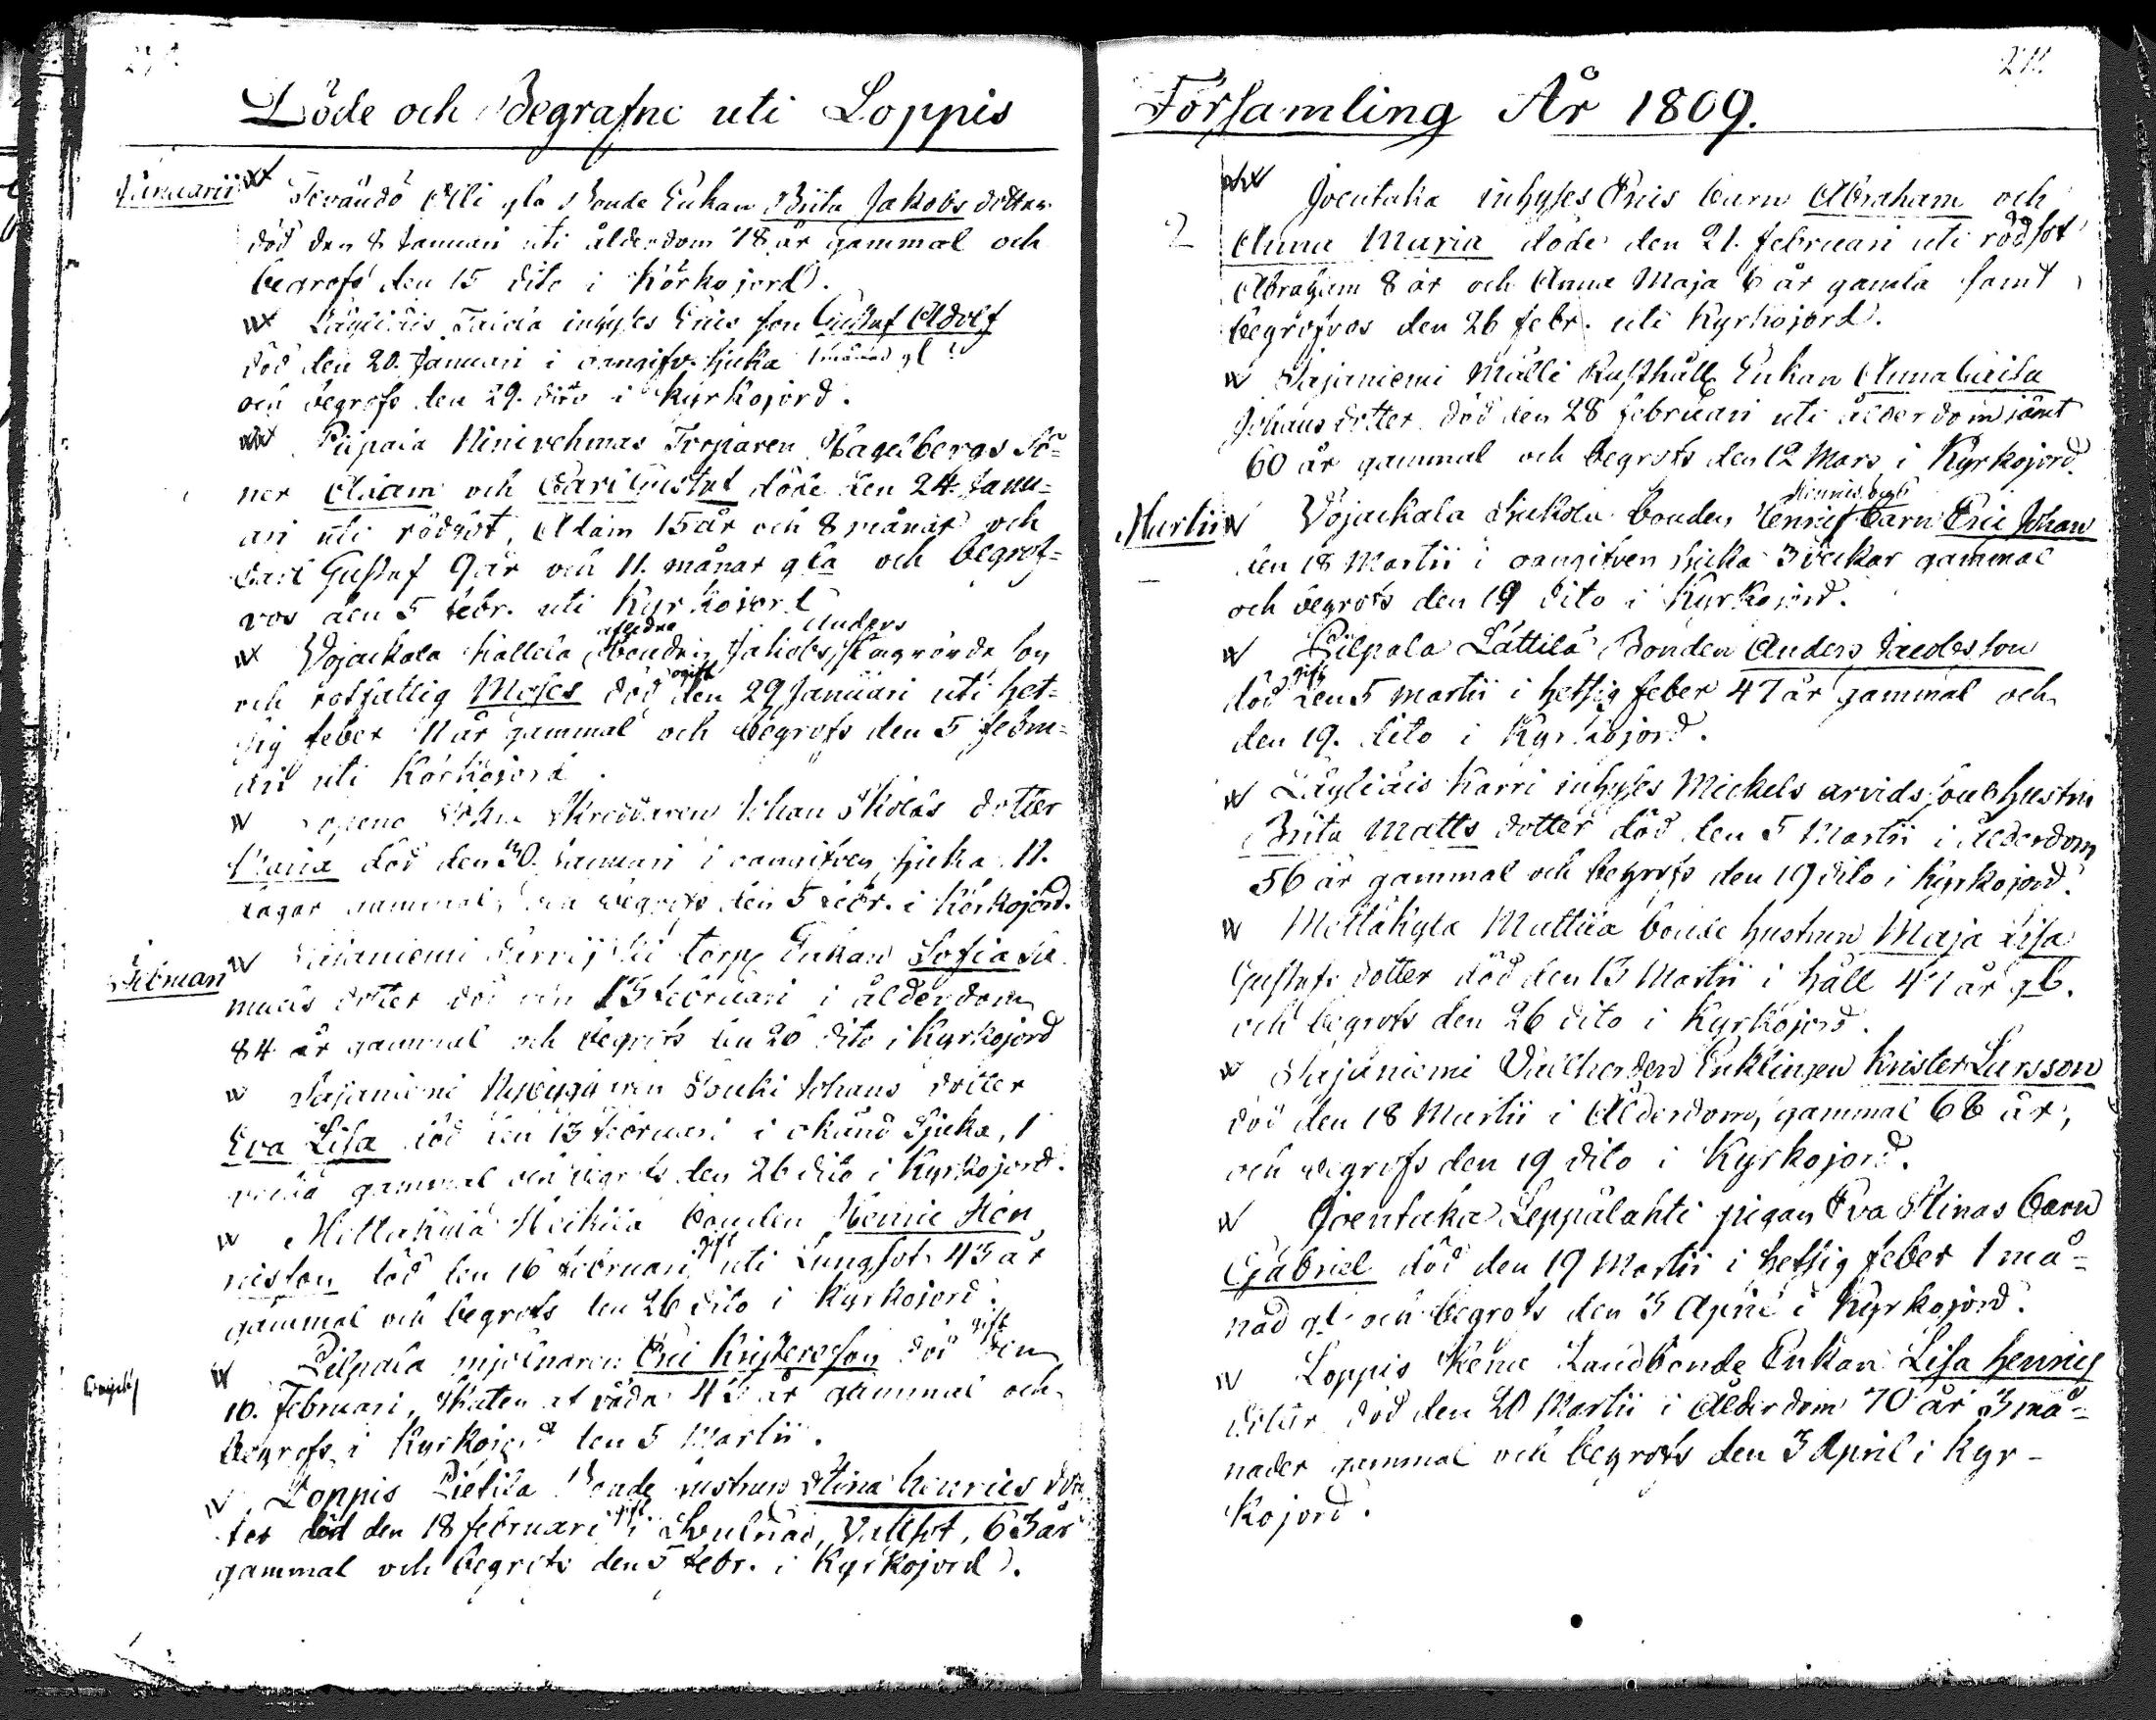 Döde och Begrafne uti Loppis
Januarii
Tevändö Olli gla Bonde Enkan Brita Jakobs dotter
död den 8 Januari uti ålderdom 78 år gammal och
begrofs den 15 dito i Körkojord.
Läyliäis Taida inhyses Erics son Gustaf Adolf
död den 20. Januari i oangifv. Sjuka 1 månad gl
och begrofs den 29. dito i Kyrkojord.
Pilpala Torparen Hagelbergs Sö=
ner Adam och Carl Gustaf döde den 24. Janu=
ari uti rödsot, Adam 15 år och 8 månar och
Carl Gustaf 9 år och 11. månar gla och begrof=
vos den 5 febr. uti Kyrkojord
afledne Anders
Vojackala Kallela Bonden Jakobs son
och rotfattig Moses död ogift den 29 Januari uti het=
sig feber 11 år gammal och begrofs den 5 febru=
ari uti Körkojord.
Skreddaren Johan dotter
Maria död den 30. Januari i oangifven Sjuka 11.
dagar gammal, och begrofs den 5 febr. i Körkojord.
Februari
Sajaniemi torp. Enkan Sofia
dotter död den 13 februari i ålderdom
84 år gammal och begrofs den 26 dito i Kyrkojord
Sajaniemi Johans dotter
Eva Lisa död den 13 februari i okänd Sjuka, 1
vecka gammal och begrofs den 26 dito i Kyrkojord.
Metläkylä Heikilä bonden Henric Hen
nisson död den 16 februari gift uti Lungsot 43 år
gammal och begrofs den 26 dito i Kyrkojord.
Pilpala mjölnaren Eric Kristersson död gift den
16. Februari, Skuten af våda 43 år gammal och
begrofs i Kyrkojord den 5 Martii.
Loppis Pietilä Bonde hustrun Stina Henrics dot
ter död den 18 februari gift i Vattsot, 63 år
gammal och begrofs den 5 febr. i Kyrkojord.
211.
Församling År 1809.
Joentaka inhyses Erics barn Abraham och
2 Anna Maria döde den 21. februari uti rödsot
Abraham 8 år och Anna Maja 6 år gamla samt
begrofvos den 26 febr. uti Kyrkojord.
Sajaniemi Mälli Rusthåll Enkan Anna Caisa
Johans dotter död den 28 februari uti ålderdom
60 år gammal och begrofs den 12 Mars i Kyrkojord.
Martii
Vojackala bonden barn Eric Johan
den 18 Martii i oangifven Sjuka 3 Veckor gammal
och begrofs den 19 dito i Kyrkojord.
Pilpala Lättilä Bonden Anders Jacobsson
död gift den 5 Martii i hetsig feber 47 år gammal och
den 19. dito i Kyrkojord.
Läyliäis Karri inhyses Mickels arvids sons hustru
Brita Matts dotter död den 5 Martii i Ålderdom
56 år gammal och begrofs den 19 dito i Kyrkojord.
Metläkylä Mattila bonde hustrun Maja Lisa
Gustafs dotter död den 13 Martii i håll 47 år gl.
och begrofs den 26 dito i Kyrkojord.
Sajaniemi Enklingen Krister Larsson
död den 18 Martii i Ålderdom, gammal 66 år,
och begrofs den 19 dito i Kyrkojord.
Joentaka Leppälahti pigan Eva Stinas barn
Gabriel död den 19 Martii i hetsig feber 1 må=
nad gl. och begrofs den 3 April i Kyrkojord.
Loppis Landbonde Enkan Lisa Henrics
död den 20 Martii i Ålderdom 70 år 3 må=
nader gammal och begrofs den 3 April i Kyr-
kojord.